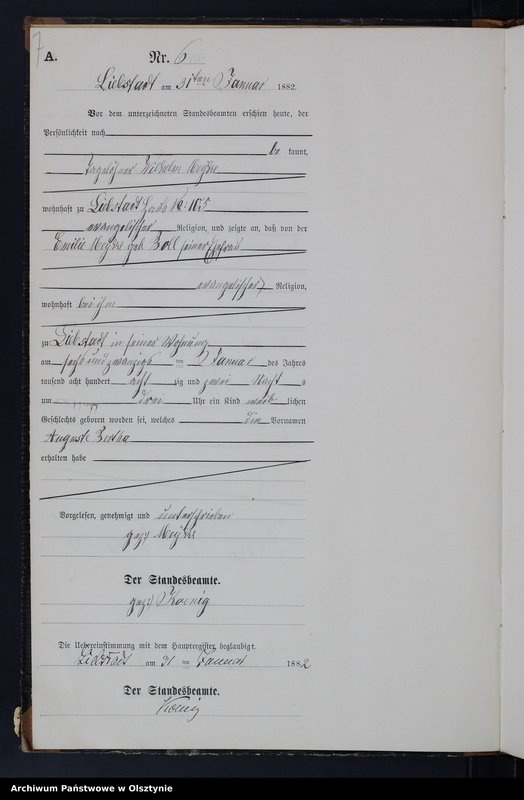 7
A.
Nr. 6
Liebstadt am 31ten Januar 1882.
Vor dem unterzeichneten Standesbeamten erschien heute, der
Persönlichkeit nach
be kannt,
Tagelöhner Wilhelm
wohnhaft zu Liebstadt No: 105
evangelischer Religion, und zeigte an, daß von der
Emilie geb. Boll seiner Ehefrau
evangelischer Religion,
wohnhaft bei ihm
zu Liebstadt in seiner Wohnung
am sechs und zwanzigs ten Januar des Jahres
tausend acht hundert acht zig und zwei Nacht s
um drei Uhr ein Kind weib lichen
Geschlechts geboren worden sei, welches die Vornamen
Auguste Bertha
erhalten habe
Vorgelesen, genehmigt und unterschrieben
gez:)
Der Standesbeamte.
gez:) Koenig
Die Uebereinstimmung mit dem Hauptregister beglaubigt.
Liebstadt am 31 ten Januar 1882
Der Standesbeamte.
Koenig
Archiwum Państwowe w Olsztynie